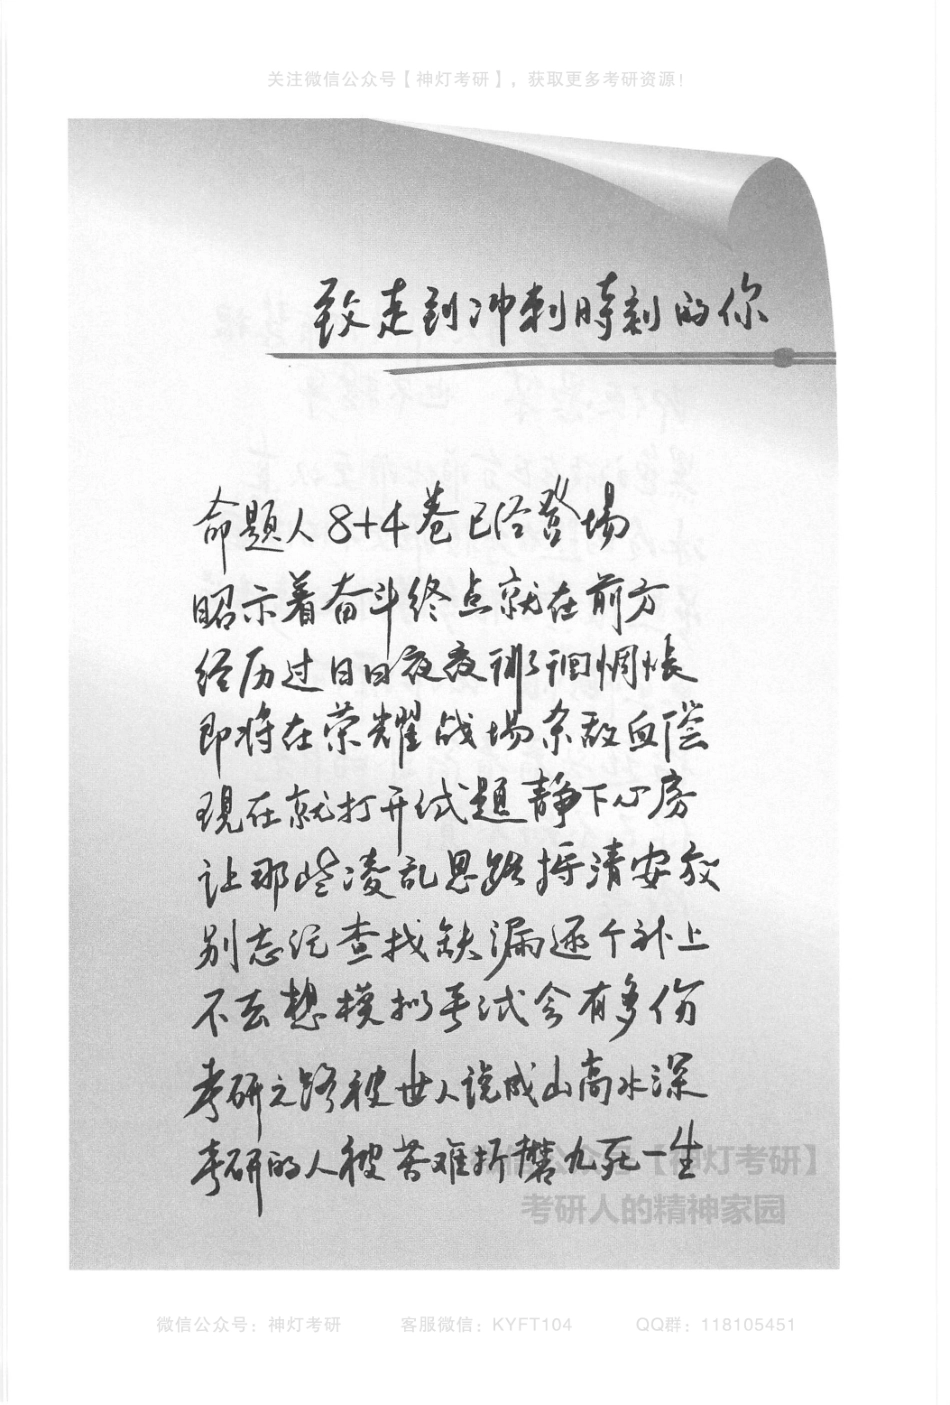 关注微信公众号【神灯考研】，获取更多考研资源！
致走到冲刺時刻的你
命题人8+4卷已经登場
昭示着奋斗终点就在前方
经历过日日夜夜彷徊惆怅
即将在荣耀战場杀敌血偿
現在就打开试題静下心房
让那些凌乱思路捋清安放
别忘记查找缺漏逐个补上
不去想模拟考试会有多伤
考研之路被世人说成山高水深
考研的人被苦难折磨九死一生
【神灯考研】
考研人的精神家园
微信公众号：神灯考研 客服微信：KYFT104 QQ群：118105451